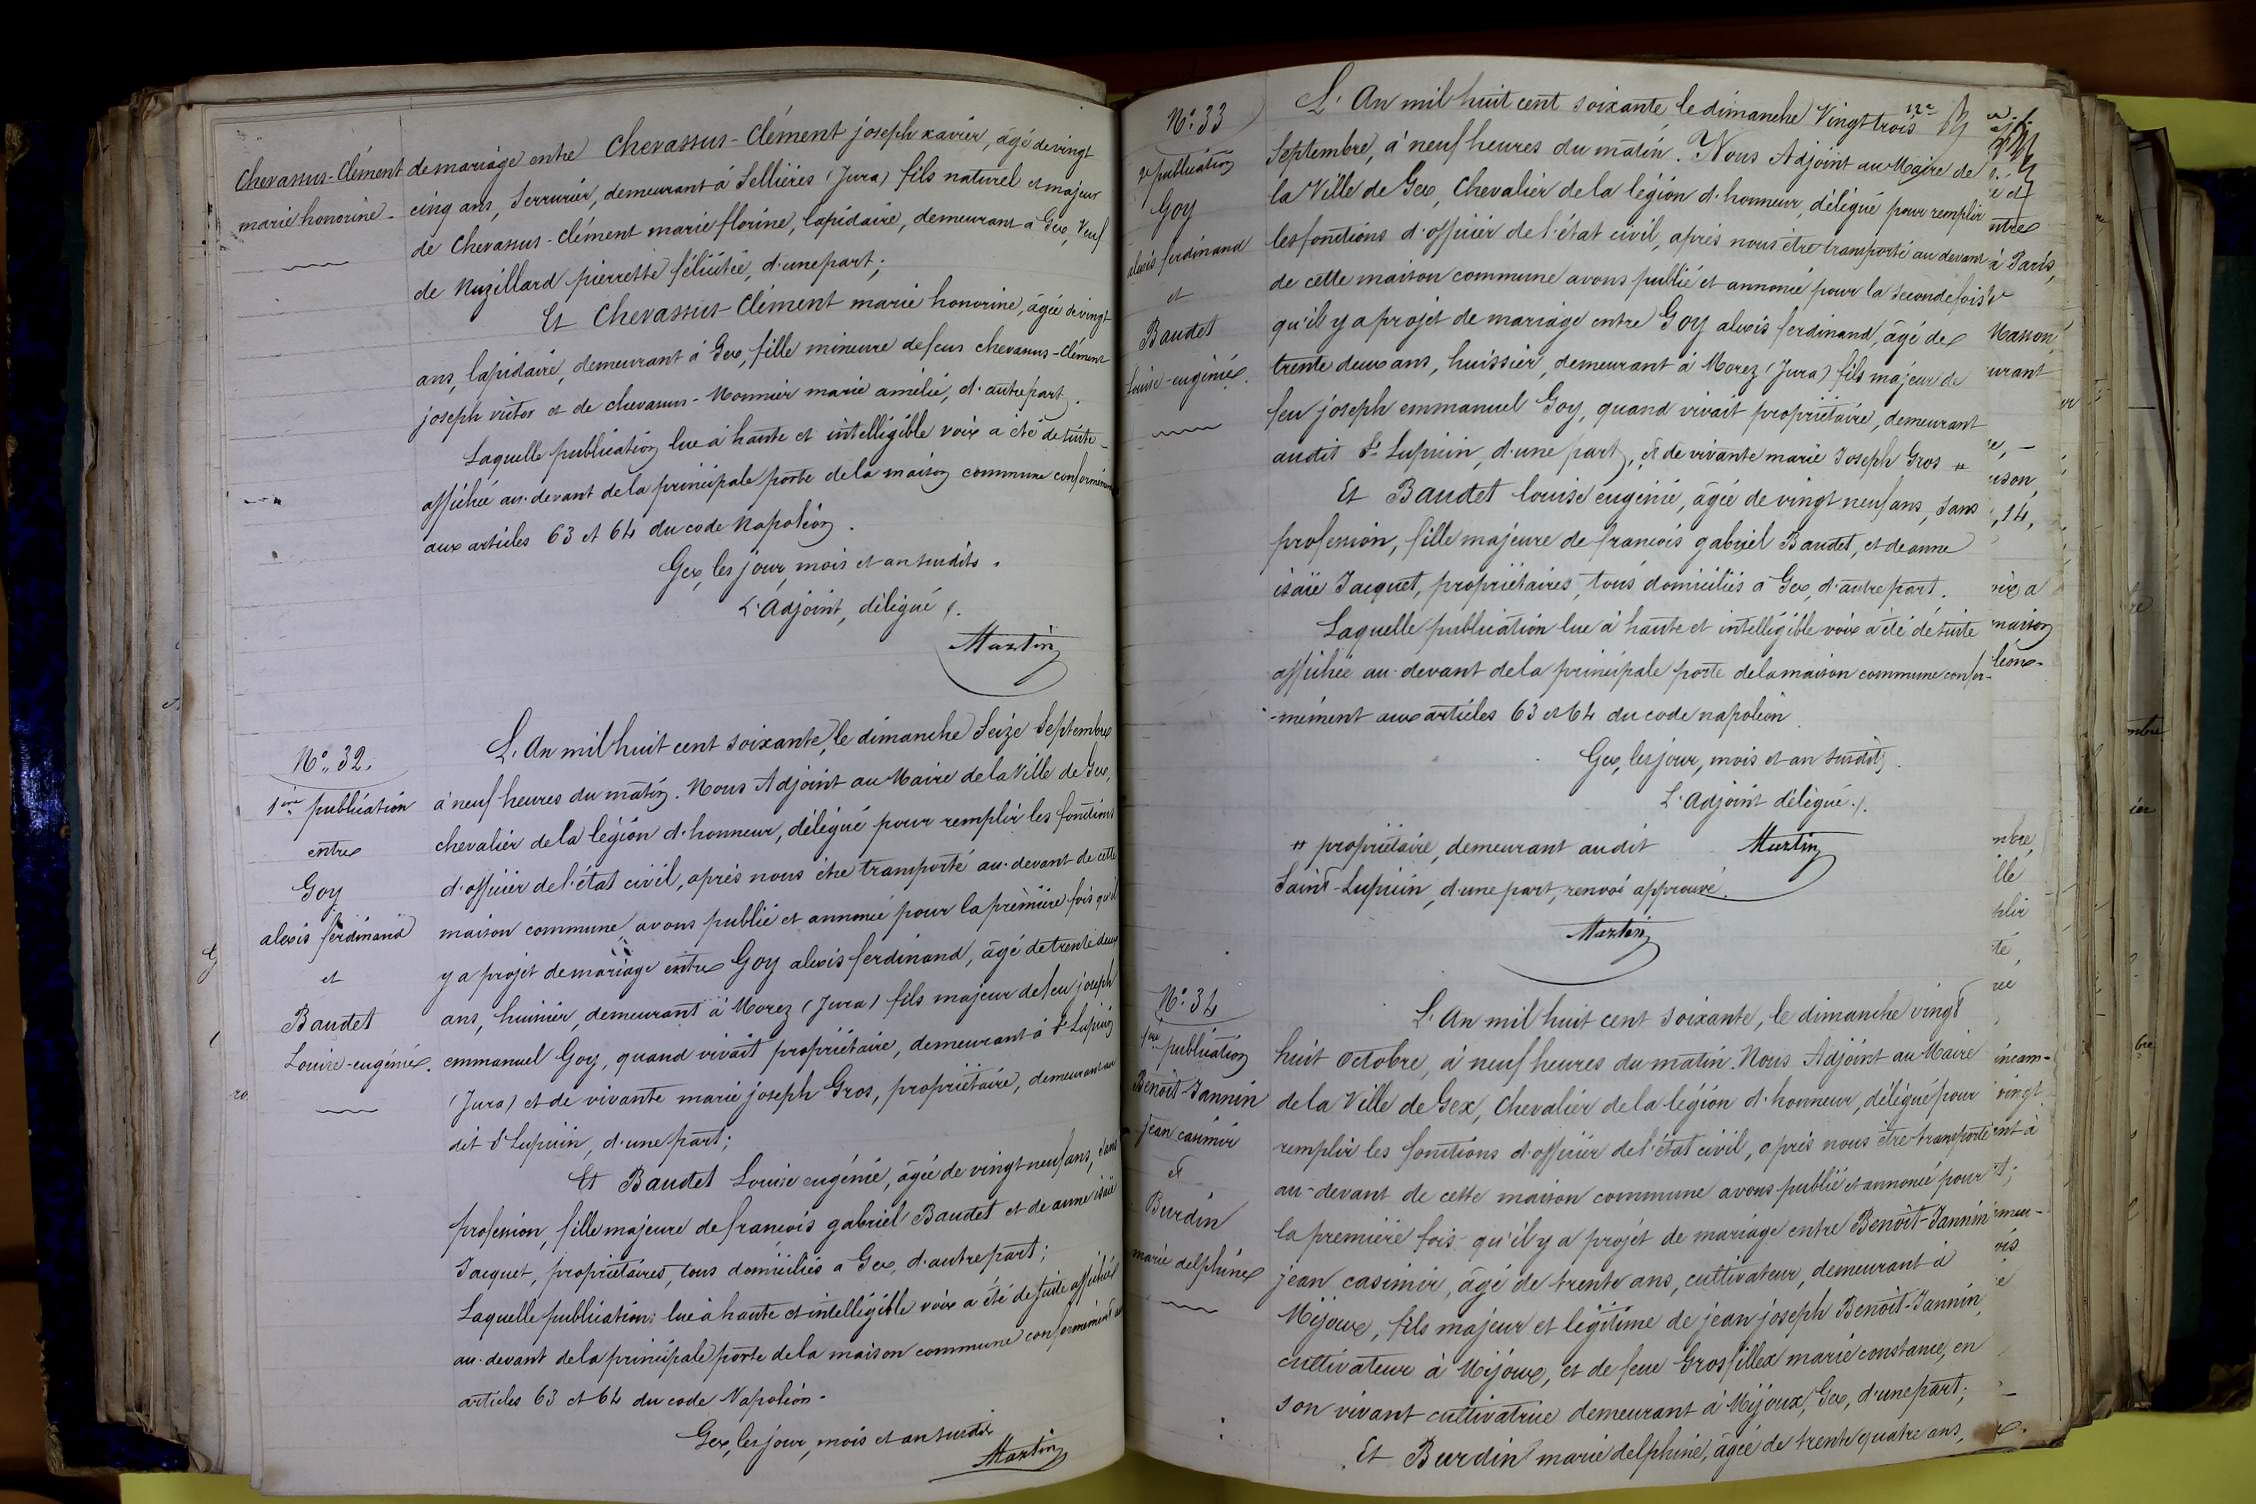 Chevassus-Clément
marie honorine -
de mariage entre Chevassus-Clément joseph xavier, âgé de vingt
cinq ans, Serrurier, demeurant à Sellières (Jura) fils naturel et majeur
de Chevassus-Clément marie florine, lapidaire, demeurant à Gex, Veuf
de Nuzillard pierrette félicitée, d'une part;
Et Chevassus-Clément marie honorine, âgée de vingt
ans, lapidaire, demeurant à Gex, fille mineure de feus chevassus-Clément
joseph victor et de chevassus-Monnier marie amélie, d'autre part.
Laquelle publication lue à haute et intelligible voix a été de suite
affichée au-devant de la principale porte de la maison commune conformément
aux articles 63 et 64 du code Napoléon.
Gex, les jour, mois et an susdits.
L'Adjoint, délégué
Martin
N° 32.
1ère publication
entre
Goy
alexis ferdinand
et
Baudet
Louise-eugénie.
L'An mil huit cent soixante, le dimanche Seize Septembre
à neuf heures du matin. Nous Adjoint au Maire de la Ville de Gex,
chevalier de la légion d'honneur, délégué pour remplir les fonctions
d'officier de l'état civil, après nous être transporté au-devant de cette
maison commune, avons publié et annoncé pour la première fois qu'il
y a projet de mariage entre Goy alexis ferdinand, âgé de trente deux
ans, huissier, demeurant à Morez (Jura) fils majeur de feu joseph
emmanuel Goy, quand vivait propriétaire, demeurant à St Lupicin
(Jura) et de vivante marie joseph Gros, propriétaire, demeurant au
dit St Lupicin, d'une part;
Et Baudet Louise eugénie, âgée de vingt neuf ans, sans
profession, fille majeure de francois gabriel Baudet et de anne isaïe
Jacquet, propriétaires, tous domiciliés à Gex, d'autre part;
Laquelle publication lue à haute et intelligible voix a été de suite affichée
au-devant de la principale porte de la maison commune conformément aux
articles 63 et 64 du code Napoléon.
Gex, les jour, mois et an susdits
Martin
N° 33
2e publication
Goy
alexis ferdinand
et
Baudet
Louise-eugénie.
L'An mil huit cent soixante le dimanche Vingt trois
Septembre, à neuf heures du matin. Nous Adjoint au Maire de
la Ville de Gex, Chevalier de la légion d'honneur, délégué pour remplir
les fonctions d'officier de l'état civil, après nous être transporté au devant
de cette maison commune avons publié et annoncé pour la seconde fois
qu'il y a projet de mariage entre Goy alexis ferdinand, âgé de
trente deux ans, huissier, demeurant à Morez (Jura) fils majeur de
feu joseph emmanuel Goy, quand vivait propriétaire, demeurant
audit St Lupicin, d'une part, et de vivante marie Joseph Gros #
Et Baudet louise eugénie, âgée de vingt neuf ans, sans
profession, fille majeure de francois gabriel Baudet, et de anne
isaïe Jacquet, propriétaires, tous domiciliés à Gex, d'autre part.
Laquelle publication lue à haute et intelligible voix a été de suite
affichée au-devant de la principale porte de la maison commune confor-
-mément aux articles 63 et 64 du code napoléon.
Gex, les jour, mois et an susdits.
L'Adjoint délégué.
# propriétaire, demeurant audit
Martin
Saint-Lupicin, d'une part, renvoi approuvé.
Martin
N° 34
1ère publication
Benoit-Jannin
jean casimir
et
Burdin
marie delphine
L'An mil huit cent soixante, le dimanche vingt
huit Octobre, à neuf heures du matin. Nous Adjoint au Maire
de la Ville de Gex, Chevalier de la légion d'honneur, délégué pour
remplir les fonctions d'officier de l'état civil, après nous être transporté
au-devant de cette maison commune avons publié et annoncé pour
la première fois qu'il y a projet de mariage entre Benoit-Jannin
jean casimir, âgé de trente ans, cultivateur, demeurant à
Mijoux, fils majeur et légitime de jean joseph Benoit-Jannin,
cultivateur à Mijoux, et de feue Grosfillex marie constance, en
son vivant cultivatrice demeurant à Mijoux, Gex, d'une part;
Et Burdin marie delphine, âgée de trente quatre ans,
à Paris,
Masson,
urant
14,
maison
vingt